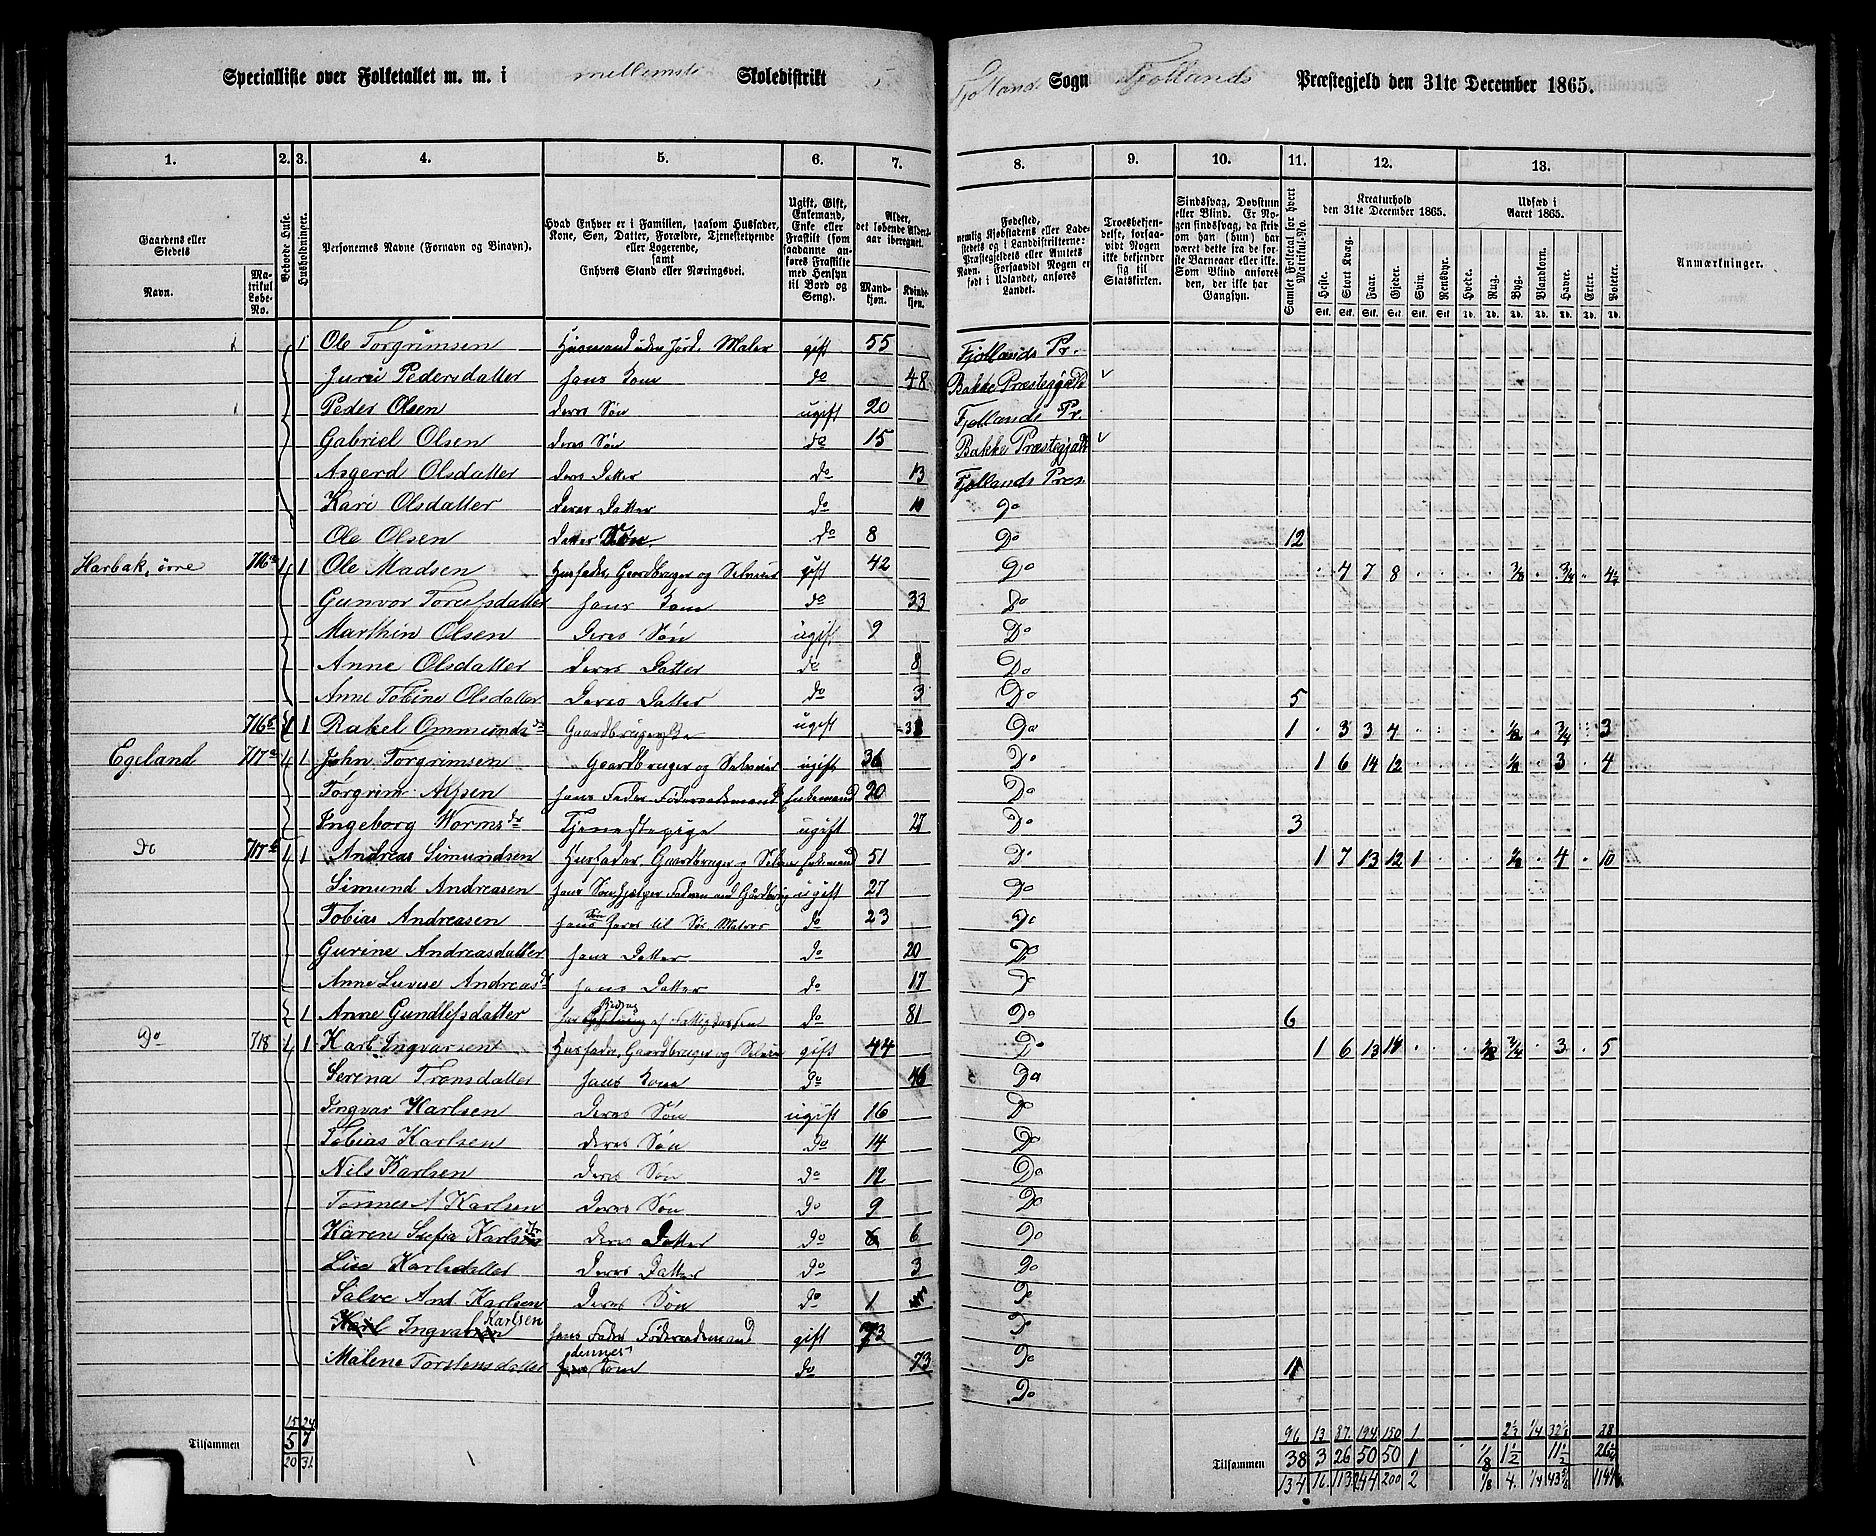 Specialliste over Folketallet m. m. i mellemste Skoledistrikt
Fjotlands Sogn Fjotlands Præstegjeld den 31te December 1865.
1. 2. 3. 4. 5. 6. 7. 8. 9. 10. 11. 12. 13.
Gaardens eller Stedets Navn. Matrikul Løbe-No. Bebo­ede Huse. Husholdninger. Personernes Navne (Fornavn og Binavn).
Hvad Enhver er i Familien, saasom Husfader, Kone, Søn, Datter, Forældre, Tjenestetyende eller Logerende, samt Enhvers Stand eller Næringsvei.
Ugift, Gift, Enkemand, Enke eller Fraskilt (som saadanne anføres Fraskilte med Hensyn til Bord og Seng).
Alder, det løbende Alders-aar iberegnet. Mandkjøn. Kvindekjøn.
Anmærkninger.
Kreaturhold den 31te December 1865. Heste. Stort Kvæg. Faar. Gjeder. Svin. Rensdyr.
Udsæd i Aaret 1865. Hvede. Rug. Byg. Blandkorn. Havre. Erter. Poteter.
1 Ole Torgrimsen Husmand uden Jord, Maler gift 55 Fjotlands Pr.
Juri Pedersdatter hans Kone do 48 Bakke Præstegjæld
Peder Olsen deres Søn ugift 20 Fjotlands Pr.
Gabriel Olsen deres Søn do 15 Bakke Præstegjæld
Asgerd Olsdatter deres Datter do 13 Fjotlands Præs.
Kari Olsdatter deres Datter do 10 Do
Ole Olsen Datter Søn do 8 Do 12
Harbak, øvre 716a 1 1 Ole Madsen Husfader, Gaardbruger og Selveier gift 42 Do 4 7 8 3/8 3/4 4½
Gunvor Torufsdatter hans Kone do 33 Do
Marthin Olsen deres Søn ugift 9 Do
Anne Olsdatter deres Datter do 8 Do
Anne Tobine Olsdatter Deres Datter do 3 Do 5
716b 1 1 Rakel Ommundsdr Gaardbrugerske ugift Do 1 3 3 4 3/4 3
Egeland 717a 1 1 John Torgrimsen Gaardbruger og Selveier ugift 36 Do 1 6 14 12 3 4
Torgrim Alfsen hans Fader Føderaadsmand Enkemand Do
Ingeborg Wormsdr Tjenestepige ugift 27 Do 3
Do 717b 1 1 Andreas Simundsen Husfader, Gaardbruger og Selveier Enkemand 51 Do 1 7 13 12 1 4 10
Simund Andreasen hans Søn hjælper Faderen med Gårdbrug ugift 27 Do
Tobias Andreasen do 23 Do
Gurine Andreasdatter hans Datter do 20 Do
Anne Andreasdr hans Datter do 17 Do
1 Anne Gundlefsdatter af Fattigkassen do 81 Do 6
Do 718 1 1 Karl Ingvarsen Husfader, Gaardbruger og Selveier gift 44 Do 1 6 13 14 3/4 3 5
Serina Tronsdatter hans Kone do 46 Do
Ingvar Karlsen deres Søn ugift 16 Do
Tobias Karlsen deres Søn do 14 Do
Nils Karlsen deres Søn do 12 Do
Tonnes A Karlsen deres Søn do 9 Do
Karen Sofia Karlsdr deres Datter do 6 Do
Lise Karlsdatter deres Datter do 3 Do
Salve And. Karlsen deres Søn do 1 Do
Ingvar Karlsen hans Fader Føderaadsmand gift 73 Do
Malene Torstensdatter dennes Kone do 73 Do 11
Do
15 24 96 13 87 194 150 1 28
Tilsammen 5 7 Tilsammen 38 3 26 50 50 1 1/8 1½ 11½ 26½
20 31 134 16 113 244 200 2 1/8 4 1/4